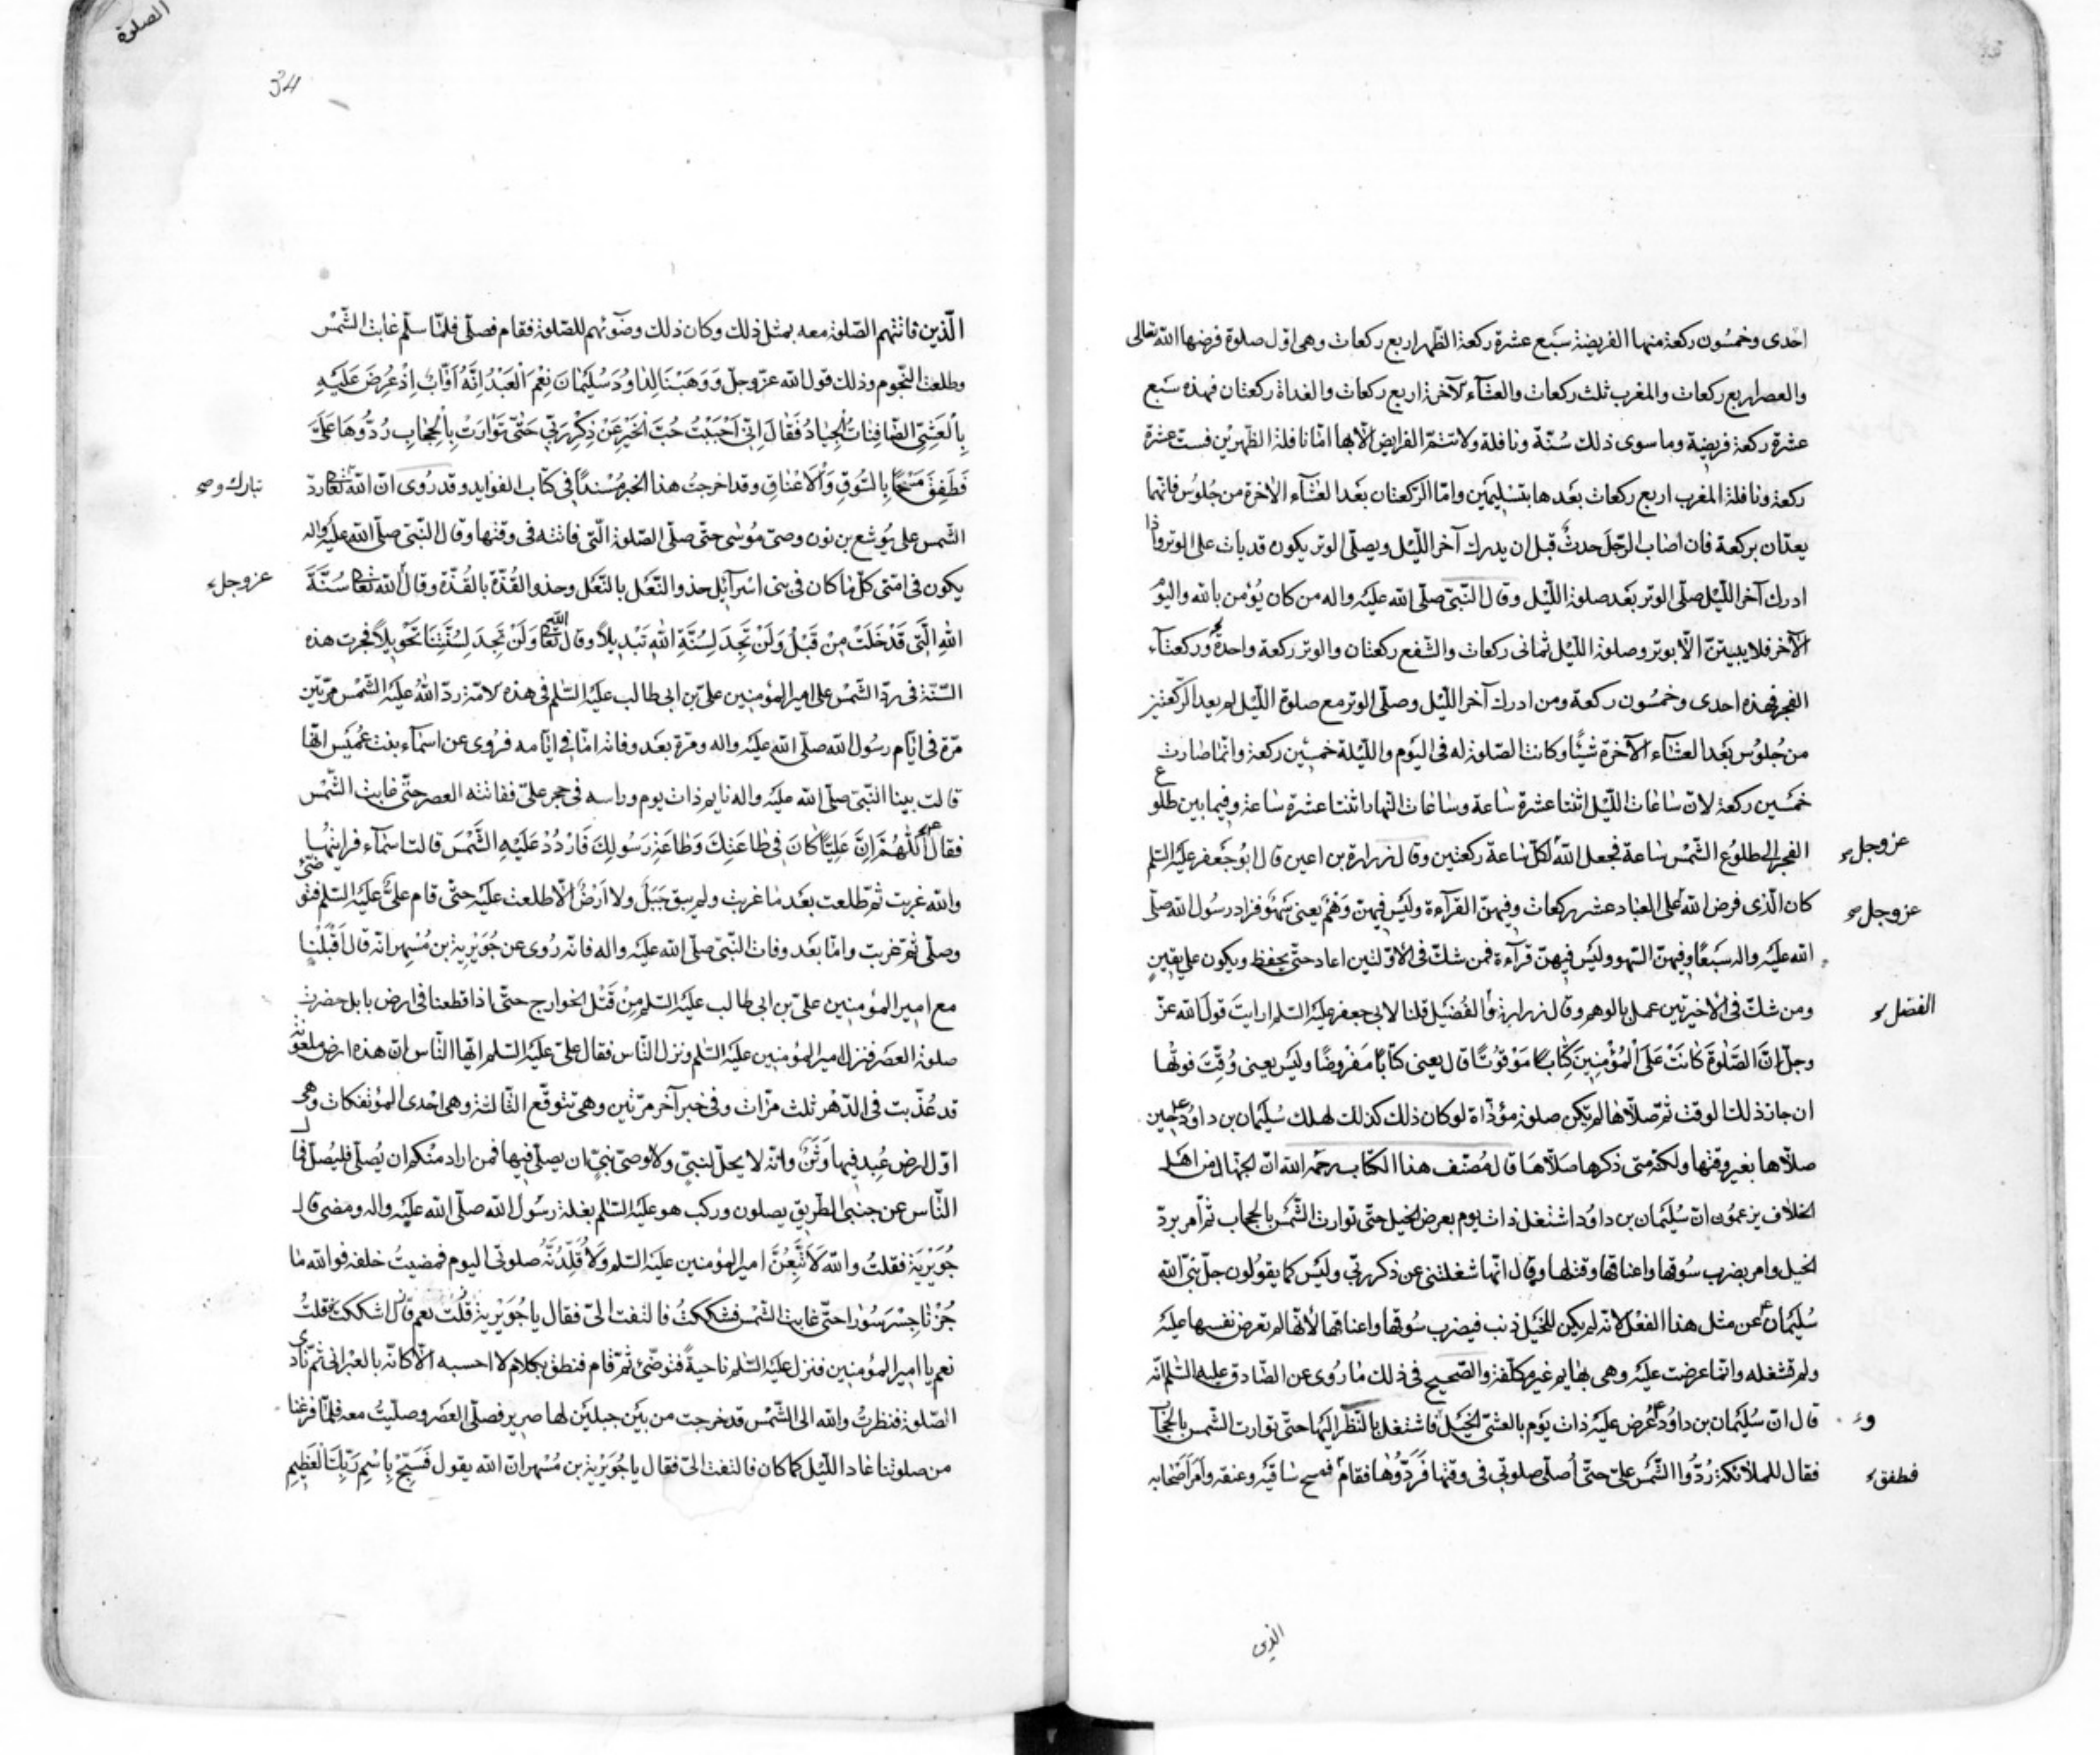 احدى وخمسون ركعة منها الفريضة سبع عشرة ركعة الظهر اربع ركعات وهى اول صلوة فرضها الله تعالى
والعصر اربع ركعات والمغرب ثلث ركعات والعشآء الآخرة اربع ركعات والغداة ركعتان فهذه سبع
عشرة ركعة فريضة وما سوى ذلك سُنّة ونافلة ولا تتم الفرايض الّا بها امّا نافلة الظهرين فست عشرة
ركعة ونافلة المغرب اربع ركعات بعدها بتسليمين وامّا الركعتان بعد العشآء الآخرة من جلوس فانهما
يعدّان بركعة فان اصاب الرجل حدث قبل ان يدرك آخر اللّيل ويصلّى الوتر يكون قد بات على الوتر واذا
ادرك آخر اللّيل صلّى الوتر بعد صلوة اللّيل وقال النّبىّ صلّى الله عليه واله من كان يؤمن بالله واليوم
الآخر فلا يبيتنّ الّا بوتر وصلوة اللّيل ثمانى ركعات والشّفع ركعتان والوتر ركعة واحدة وركعتآء
الفجر فهذه احدى وخمسون ركعة ومن ادرك آخر اللّيل وصلّى الوتر مع صلوة اللّيل لم يعد الركعتين
من جلوس بعد العشآء الآخرة شيئًا وكانت الصّلوة له فى اليوم واللّيلة خمسين ركعة وانّما صارت
خمسين ركعة لانّ ساعات اللّيل اثنتا عشرة ساعة وساعات النّهار اثنتا عشرة ساعة وفيما بين طلوع
الفجر الى طلوع الشّمس ساعة فجعل الله لكلّ ساعة ركعتين وقال زرارة بن اعين قال ابو جعفر عليه السّلم
عز وجل
كان الّذى فرض الله على العباد عشر ركعات وفيهنّ القرآءة وليس فيهنّ وَهْم يعنى سَهْو فزاد رسول الله صلّى
عز وجل صح
الله عليه واله سبعًا وفيهنّ السّهو وليس فيهنّ قرآءة فمن شكّ فى الاوّلتين اعاد حتّى يحفظ ويكون على يقين
ومن شكّ فى الاخيرتين عمل بالوهم وقال زرارة والفُضَيل قلنا لابى جعفر عليه السّلم ارايت قول الله عزّ
الفضل
وجلّ اِنَّ الصَّلٰوةَ كَانَتْ عَلَى الْمُؤْمِنِينَ كِتَابًا مَوْقُوتًا قال يعنى كتابًا مفروضًا وليس يعنى وُقّتَ فوتها
ان جاز ذلك الوقت ثمّ صلّاها لم تكن صلوة مؤدّاة لو كان ذلك كذلك لهلك سُليمان بن داود ع حين
صلّاها بغير وقتها ولكنّه متى ذكرها صلّاها قال مُصنّف هذا الكتاب رحمه الله انّ الجهّال من اهل
الخلاف يزعمون انّ سُليمان بن داود اشتغل ذات يوم بعرض الخيل حتّى توارت الشّمس بالحجاب ثمّ امر بردّ
الخيل وامر بضرب سُوقها واعناقها وقتلها وقال انّها شغلتنى عن ذكر ربّى وليس كما يقولون جلّ نبىّ الله
سُليمان ع عن مثل هذا الفعل لانّه لم يكن للخيل ذنب فيضرب سُوقها واعناقها لأنّها لم تعرض نفسها عليه
ولم تشغله وانّما عرضت عليه وهى بهايم غير مكلّفة والصّحيح فى ذلك ما روى عن الصّادق عليه السّلم انّه
قال انّ سُليمان بن داود ع عُرض عليه ذات يوم بالعشىّ الخيل فاشتغل بالنّظر اليها حتّى توارت الشّمس بالحجاب
و
فقال للملآئكة رُدّوا الشّمس علىّ حتّى اُصلّى صلوتى فى وقتها فَرَدُّوها فقام فمسح ساقيه وعنقه وامر اصحابه
فطفق
الذين
الصلوة
34
الّذين فاتتهم الصّلوة معه بمثل ذلك وكان ذلك وضوئهم للصّلوة فقام فصلّى فلمّا سلّم غابت الشّمس
وطلعت النّجوم وذلك قول الله عزّ وجلّ وَوَهَبْنَا لِدَاوُدَ سُلَيْمَانَ نِعْمَ الْعَبْدُ اِنَّهُ اَوَّابٌ اِذْ عُرِضَ عَلَيْهِ
بِالْعَشِىِّ الصَّافِنَاتُ الْجِيَادُ فَقَالَ اِنِّى اَحْبَبْتُ حُبَّ الْخَيْرِ عَنْ ذِكْرِ رَبِّى حَتّٰى تَوَارَتْ بِالْحِجَابِ رُدُّوهَا عَلَىَّ
فَطَفِقَ مَسْحًا بِالسُّوقِ وَالْاَعْنَاقِ وقد اخرجت هذا الخبر مُسْندًا فى كتاب الفوايد وقد رُوى انّ الله تعالى ردّ
تبارك و صح
الشّمس على يُوشع بن نون وصىّ مُوسٰى حتّى صلّى الصّلوة الّتى فاتته فى وقتها وقال النّبىّ صلّى الله عليه واله
يكون فى امّتى كلّ ما كان فى بنى اسرآئيل حذو النّعل بالنّعل وحذو القُذّة بالقُذّة وقال الله تعالى سُنَّةَ
عز وجل
اللهِ الَّتِى قَدْ خَلَتْ مِنْ قَبْلُ وَلَنْ تَجِدَ لِسُنَّةِ اللهِ تَبْدِيلاً وقال الله تعالى وَلَنْ تَجِدَ لِسُنَّتِنَا تَحْوِيلاً فجرت هذه
السّنّة فى ردّ الشّمس على امير المؤمنين علىّ بن ابى طالب عليه السّلم فى هذه الامّة ردّ الله عليه الشّمس مرّتين
مرّة فى ايّام رسول الله صلّى الله عليه واله ومرّة بعد وفاته امّا فى ايّامه فرُوى عن اسمآء بنت عُمَيس انّها
قالت بينا النّبىّ صلّى الله عليه واله نايم ذات يوم وراسه فى حجر علىّ ففاتته العصر حتّى غابت الشّمس
فقال اَللّٰهُمَّ اِنَّ عَلِيًّا كَانَ فِى طَاعَتِكَ وَطَاعَةِ رَسُولِكَ فَارْدُدْ عَلَيْهِ الشَّمْسَ قالت اسمآء فرايتها
والله غربت ثمّ طلعت بعد ما غربت ولم يبق جَبَلٌ ولا اَرْضٌ الّا طلعت عليه حتّى قام علىّ عليه السّلم فتوضّئ
وصلّى ثمّ غربت وامّا بعد وفات النّبىّ صلّى الله عليه واله فانّه رُوى عن جُوَيْرِية بن مُسْهِر انّه قال اَقْبَلْنَا
مع امير المؤمنين علىّ بن ابى طالب عليه السّلم مِنْ قَتْل الخوارج حتّى اذا قطعنا فى ارض بابل حضرت
صلوة العصر فنزل امير المؤمنين عليه السّلم ونزل النّاس فقال علىّ عليه السّلم ايّها النّاس انّ هذه ارض ملعونة
قد عُذّبت فى الدّهر ثلث مرّات وفى خبر آخر مرّتين وهى تتوقّع الثّالثة وهى اِحْدى المؤتفكات وهى
اوّل ارض عُبِد فيها وَثَنٌ وانّه لا يحلّ لنبىّ ولا لوصىّ نبىّ ان يصلّى فيها فمن اراد منكم ان يُصلّى فليُصلّ فمال
النّاس عن جنبى الطّريق يصلون وركب هو عليه السّلم بغلة رسول الله صلّى الله عليه واله ومضى قال
جُوَيْرِية فقلتُ والله لَاَتَّبِعَنَّ امير المؤمنين عليه السّلم وَلَاُقَلِّدَنَّهُ صلوتى اليوم فمضيتُ خلفه فوالله ما
جُزْنا جِسْر سُورا حتّى غابت الشّمس فشككتُ فالتفت الىّ فقال يا جُوَيْرِية اشككت فقلتُ
نعم يا امير المؤمنين فنزل عليه السّلم ناحيةً فتوضّئ ثمّ قام فنطق بكلام لا احسبه الّا كانّه بالعبرانى ثمّ نادى
الصّلوة فنظرتُ والله الى الشّمس قد خرجت من بين جبلين لها صرير فصلّى العصر وصلّيتُ معه فلمّا فرغنا
من صلوتنا عاد اللّيل كما كان فالتفت الىّ فقال يا جُوَيْرِية بن مُسْهر انّ الله يقول فَسَبِّحْ بِاسْمِ رَبِّكَ الْعَظِيمِ